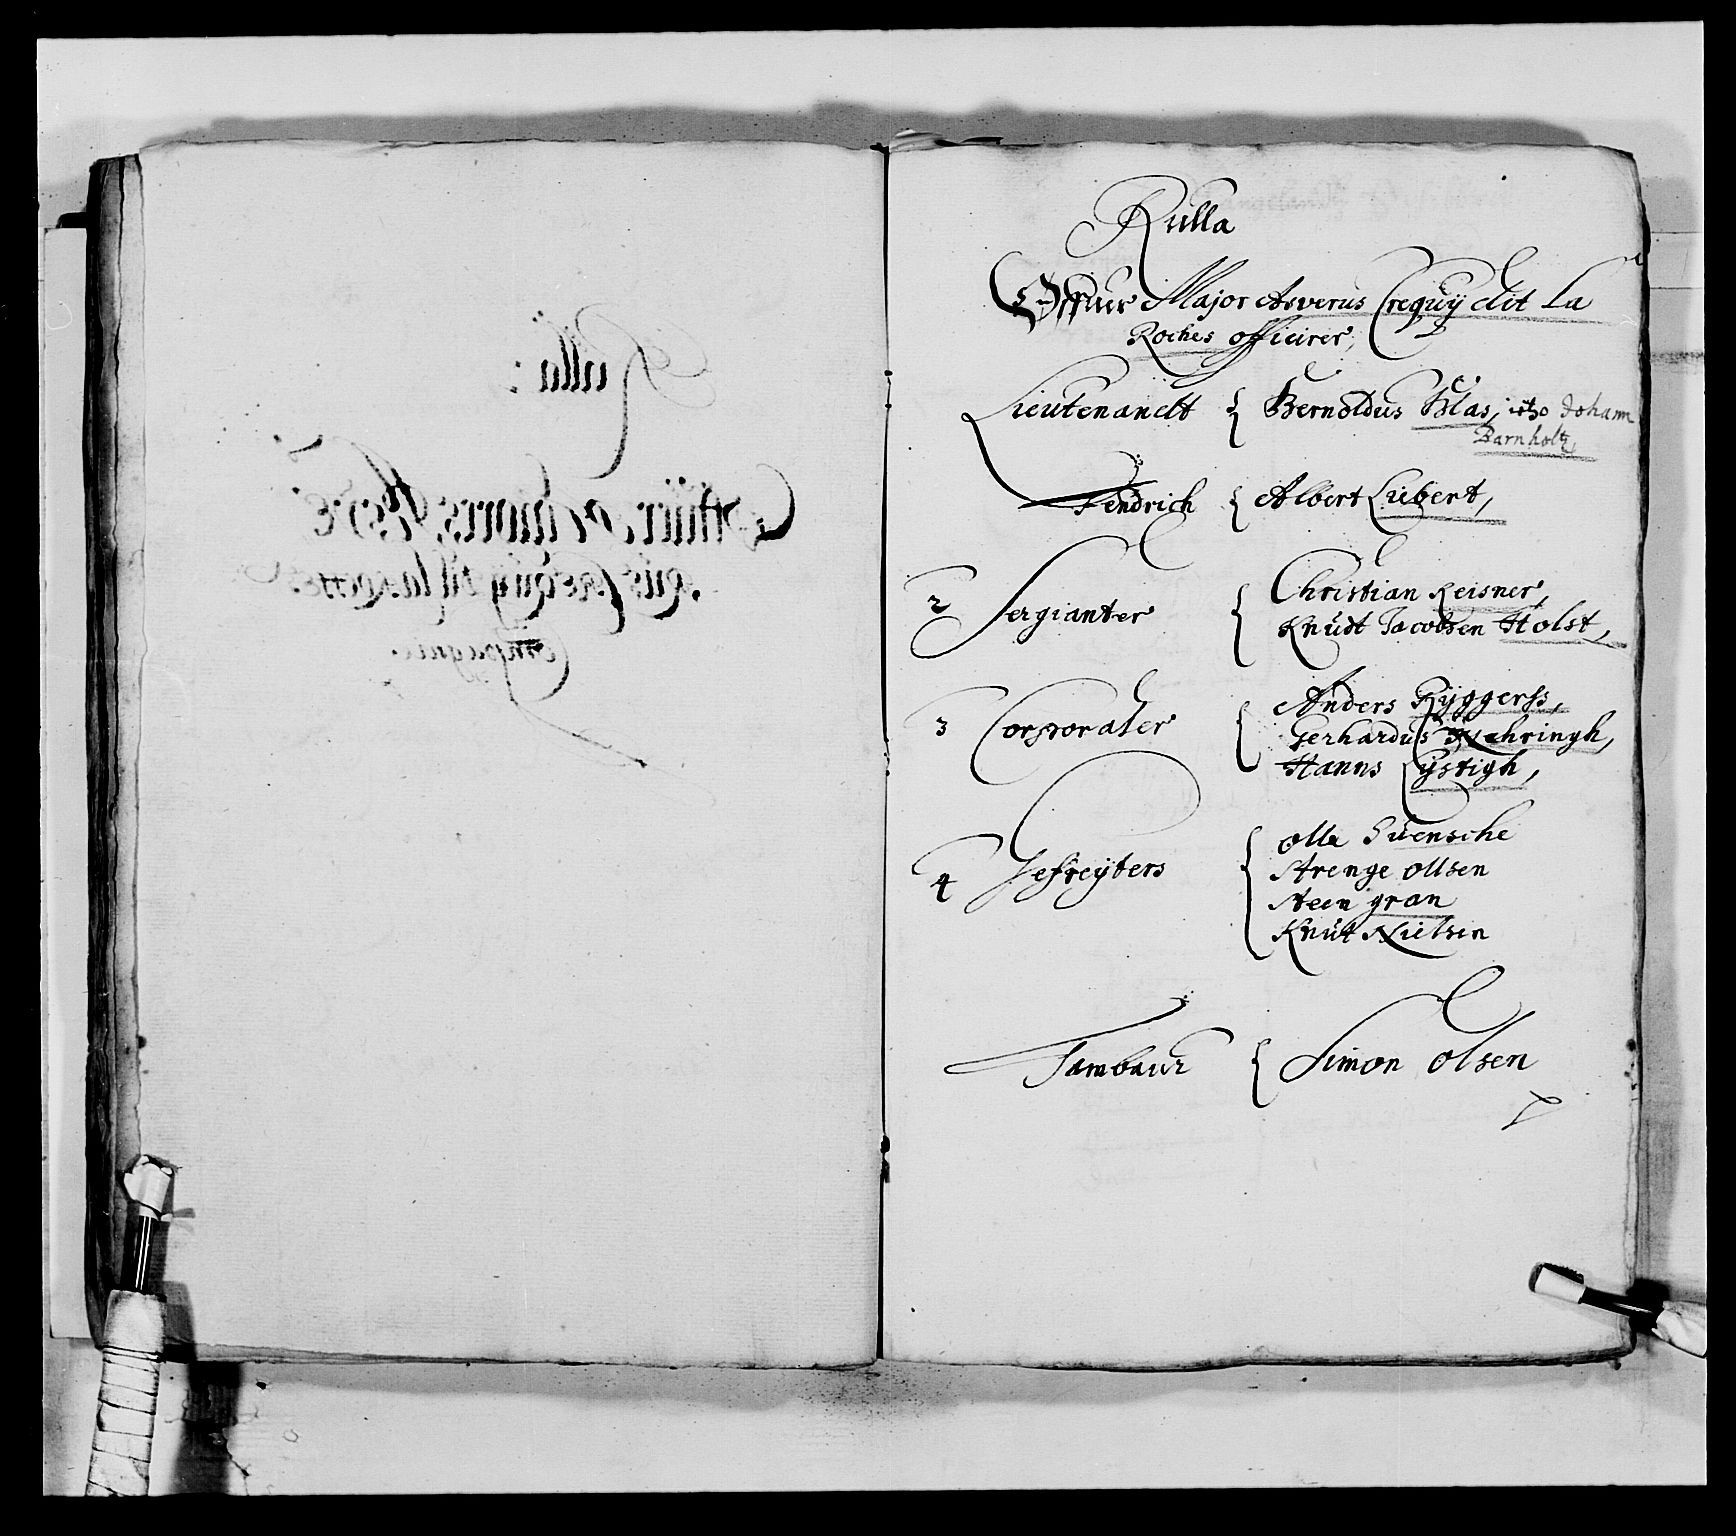 Rulla
Offuer Major Asverus Crequÿ dit La
Roches officirer,
Lieutenandt { Bernoldus Blas, itzo Johann
Barnholtz,
Fendrich { Albert Liebert,
2 Sergianter { Christian Reisner,
Knüdt Jacobsen Holst,
3 Corporaler { Anders Rÿggerss,
Gerhardus Nehringh,
Hanns Lÿstigh,
4 Gefreÿters { Olle Suensche
Strenge ollsen
Steen gran
Knüt Nielsen
Tambaur { Simon Olsen